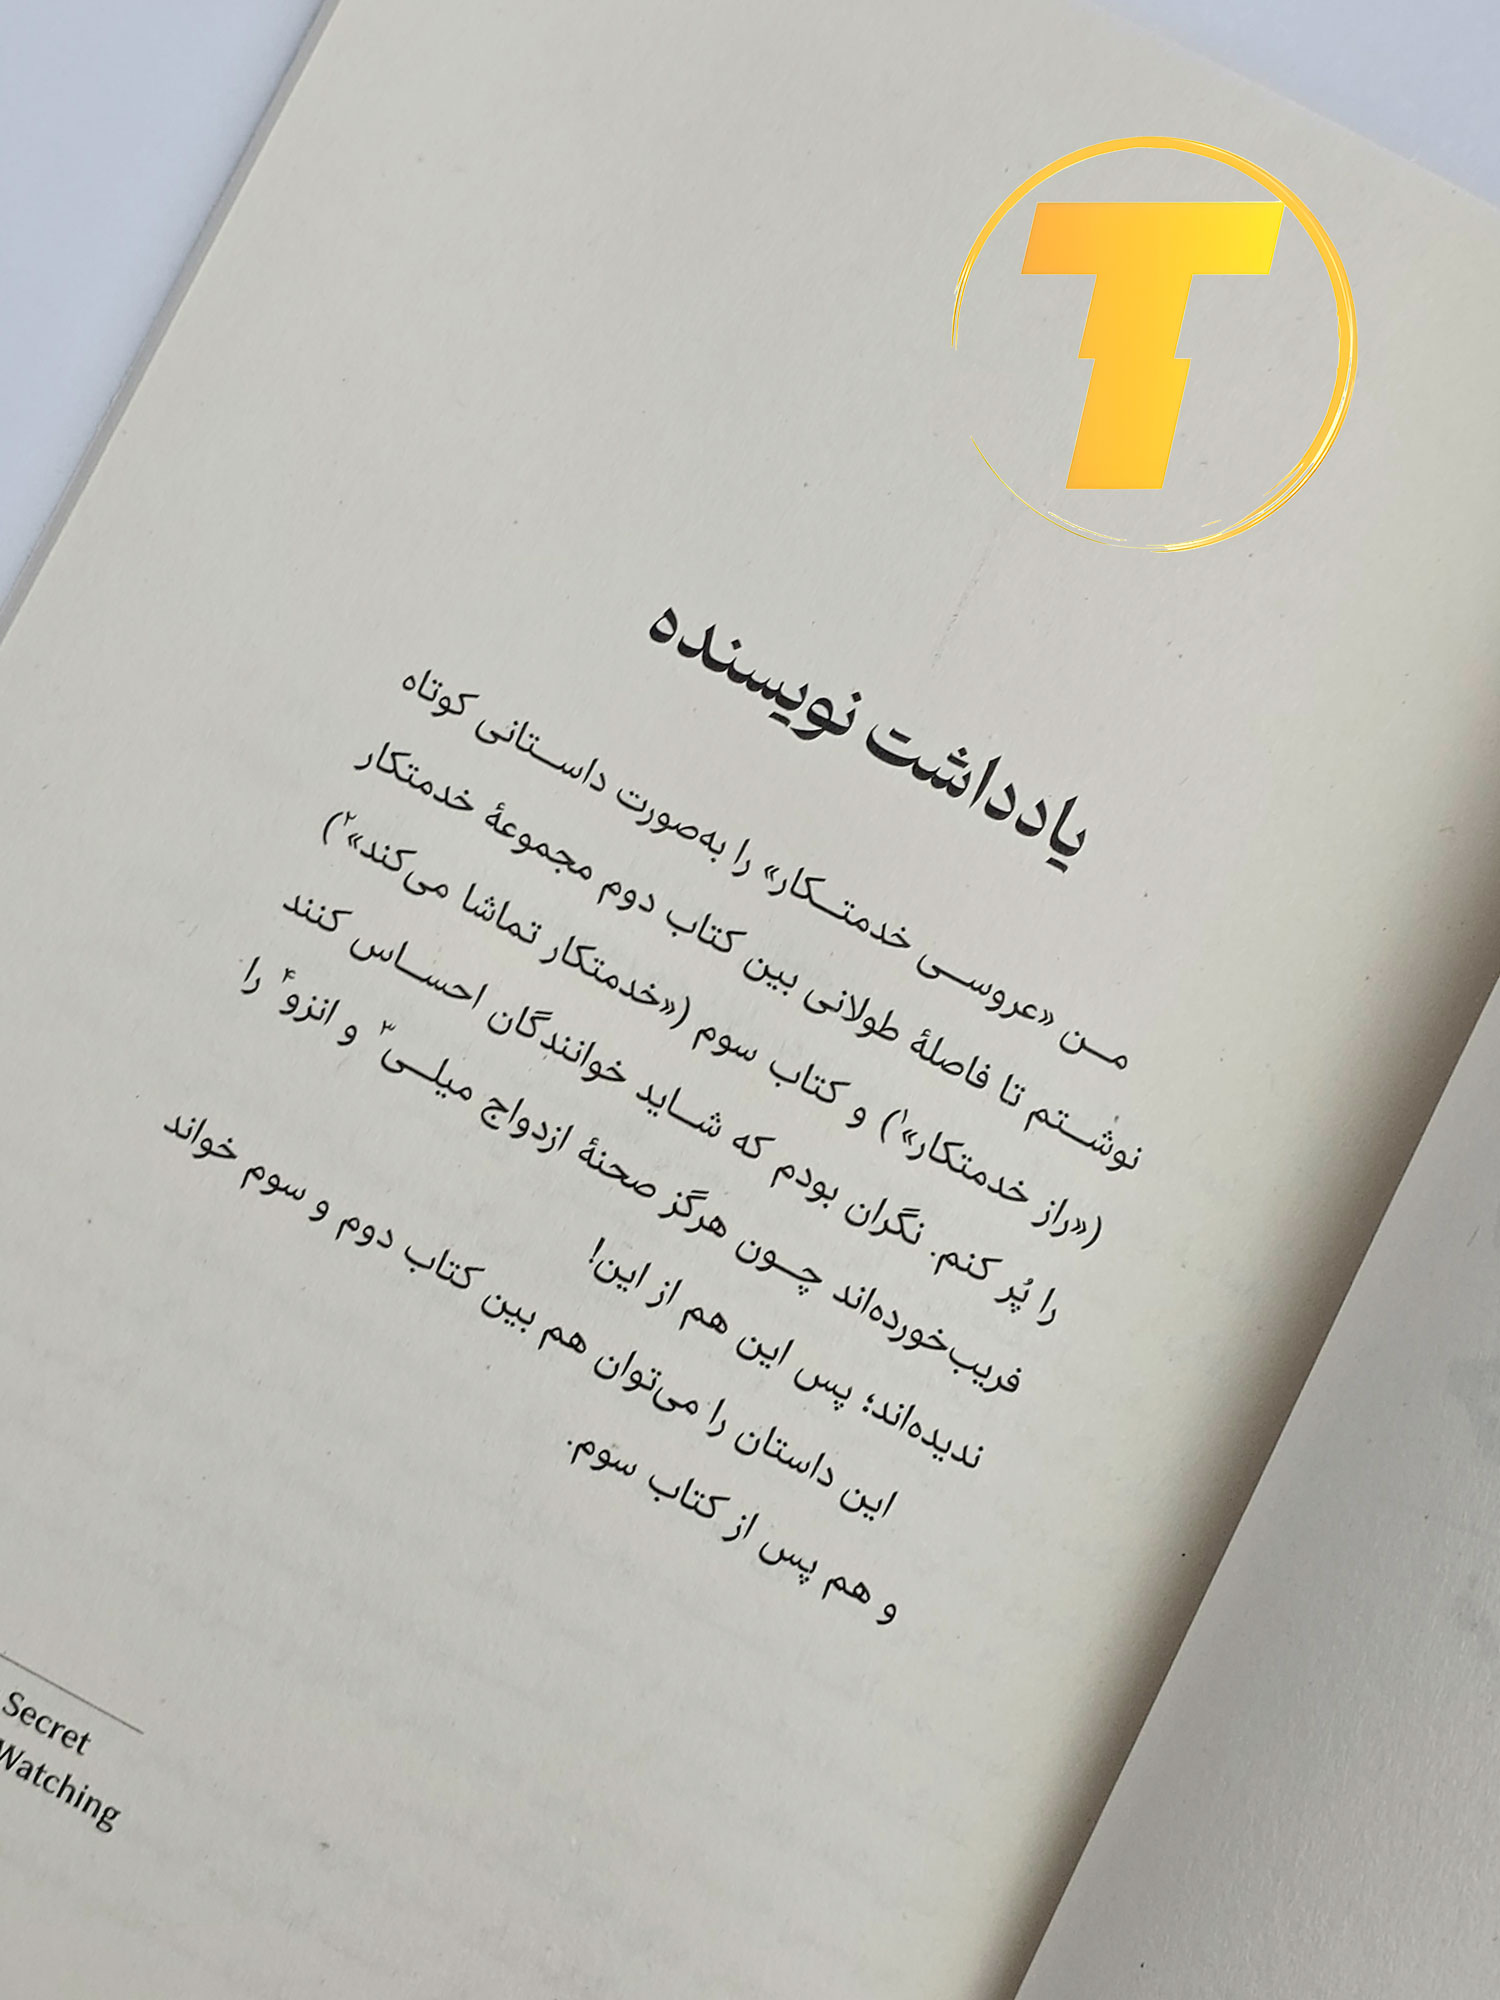 T
یادداشت نویسنده
من «عروسی خدمتکار» را به‌صورت داستانی کوتاه
نوشتم تا فاصلهٔ طولانی بین کتاب دوم مجموعهٔ خدمتکار
(«راز خدمتکار»۱) و کتاب سوم («خدمتکار تماشا می‌کند»۲)
را پُر کنم. نگران بودم که شاید خوانندگان احساس کنند
فریب‌خورده‌اند چون هرگز صحنهٔ ازدواج میلی۳ و انزو۴ را
ندیده‌اند؛ پس این هم از این!
این داستان را می‌توان هم بین کتاب دوم و سوم خواند
و هم پس از کتاب سوم.
Secret
Watching